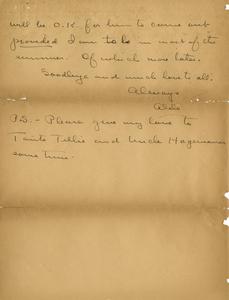 will be O.K. for him to come out
provided I am to be in most of the
summer. Of which more later.
Goodbye and much love to all.
Always
P.S. - Please give my love to
Tante Tillie and Uncle Hagerman
some time.